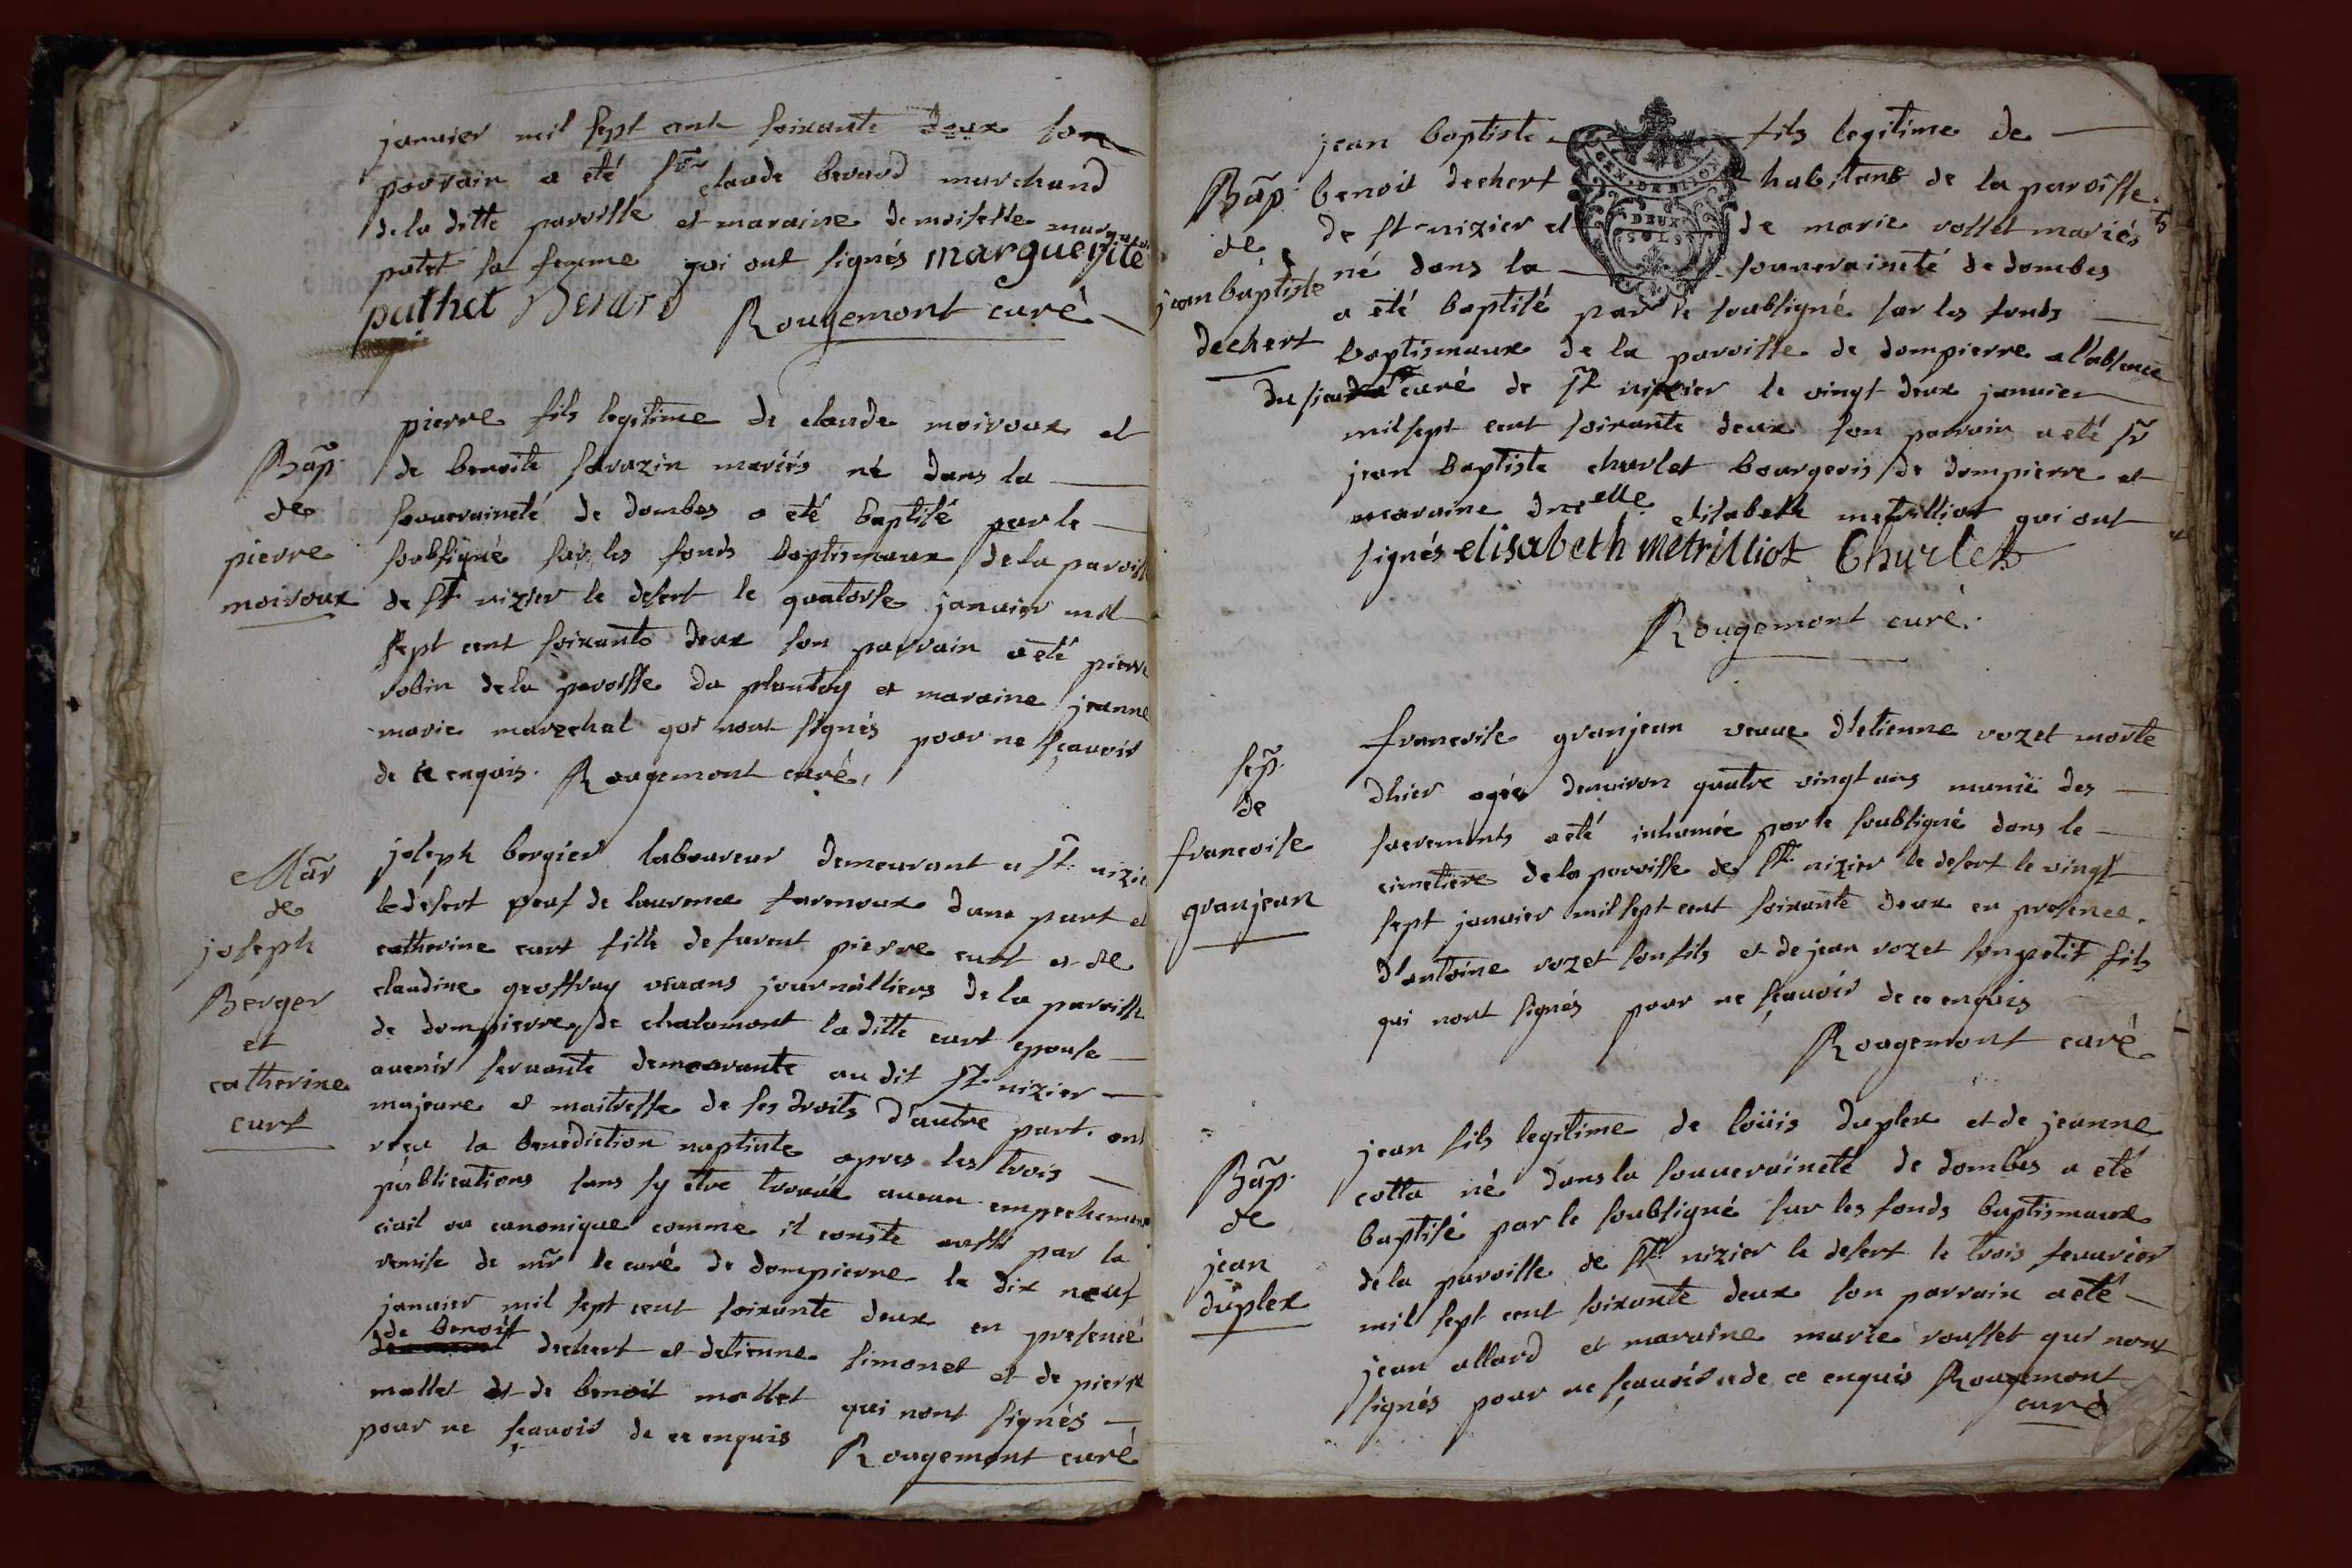 janvier mil sept cent soixante deux son
parrain a eté sr claude berard marchand
de la ditte paroisse et maraine demoiselle
patet sa femme qui ont signés marguerite
pathet Berard Rougemont curé
Bap.
de
pierre
moiroux
pierre fils legitime de claude moiroux et
de benoite sarazin mariés né dans la
souveraineté de dombes a eté baptisé par le
soubsigné sur les fonds baptismaux de la paroisse
de st nizier le desert le quatorse janvier mil
sept cent soixante deux son parrain a eté pierre
robin de la paroisse du plantay et maraine jeanne
marie marechal qui nont signés pour ne sçavoir
de ce enquis. Rougemont curé
Mar
de
joseph
Berger
et
catherine
curt
joseph bergier laboureur demeurant a st nizier
le desert veuf de laurence farnoux dune part et
catherine curt fille de furent pierre curt et de
claudine geoffray vivans journalliers de la paroisse
de dompierre de chalamont la ditte curt epouse
avenir servante demeurante au dit st nizier
majeure et maitresse de ses droits d'autre part. ont
reçu la benediction nuptiale apres les trois
publications sans sy etre trouvé aucun empechement
civil ou canonique comme il conste aussi par la
remise de mr le curé de dompierre le dix neuf
janvier mil sept cent soixante deux en presence
de benoit dechert et detienne simonet et de pierre
mallet et de benoit mallet qui nont signés
pour ne sçavoir de ce enquis Rougemont curé
Bap.
de
jean baptiste
dechert
jean baptiste fils legitime de
benoit dechert habitans de la paroisse
de st nizier et de marie rosset mariés
né dans la souveraineté de dombes
a eté baptisé par le soubsigné sur les fonds
baptismaux de la paroisse de dompierre a l'absence
du sieur curé de st nizier le vingt deux janvier
mil sept cent soixante deux son parrain a eté sr
jean baptiste charlet bourgeois de dompierre et
maraine dmelle elisabeth metrilliot qui ont
signés elisabeth metrilliot Charlet
Rougemont curé.
DEUX
SOLS
sep.
de
francoise
granjean
francoise granjean veuve d'etienne rozet morte
dhier agée denviron quatre vingt ans munie des
sacrements a eté inhumée par le soubsigné dans le
cimetiere de la paroisse de st nizier le desert le vingt
sept janvier mil sept cent soixante deux en presence
d'antoine rozet son fils et de jean rozet son petit fils
qui nont signés pour ne sçavoir de ce enquis
Rougemont curé
Bap.
de
jean
duplex
jean fils legitime de loüis duplex et de jeanne
cotta né dans la souveraineté de dombes a eté
baptisé par le soubsigné sur les fonds baptismaux
de la paroisse de st nizier le desert le trois fevrier
mil sept cent soixante deux son parrain a eté
jean allard et maraine marie rousset qui nont
signés pour ne sçavoir de ce enquis Rougemont
curé